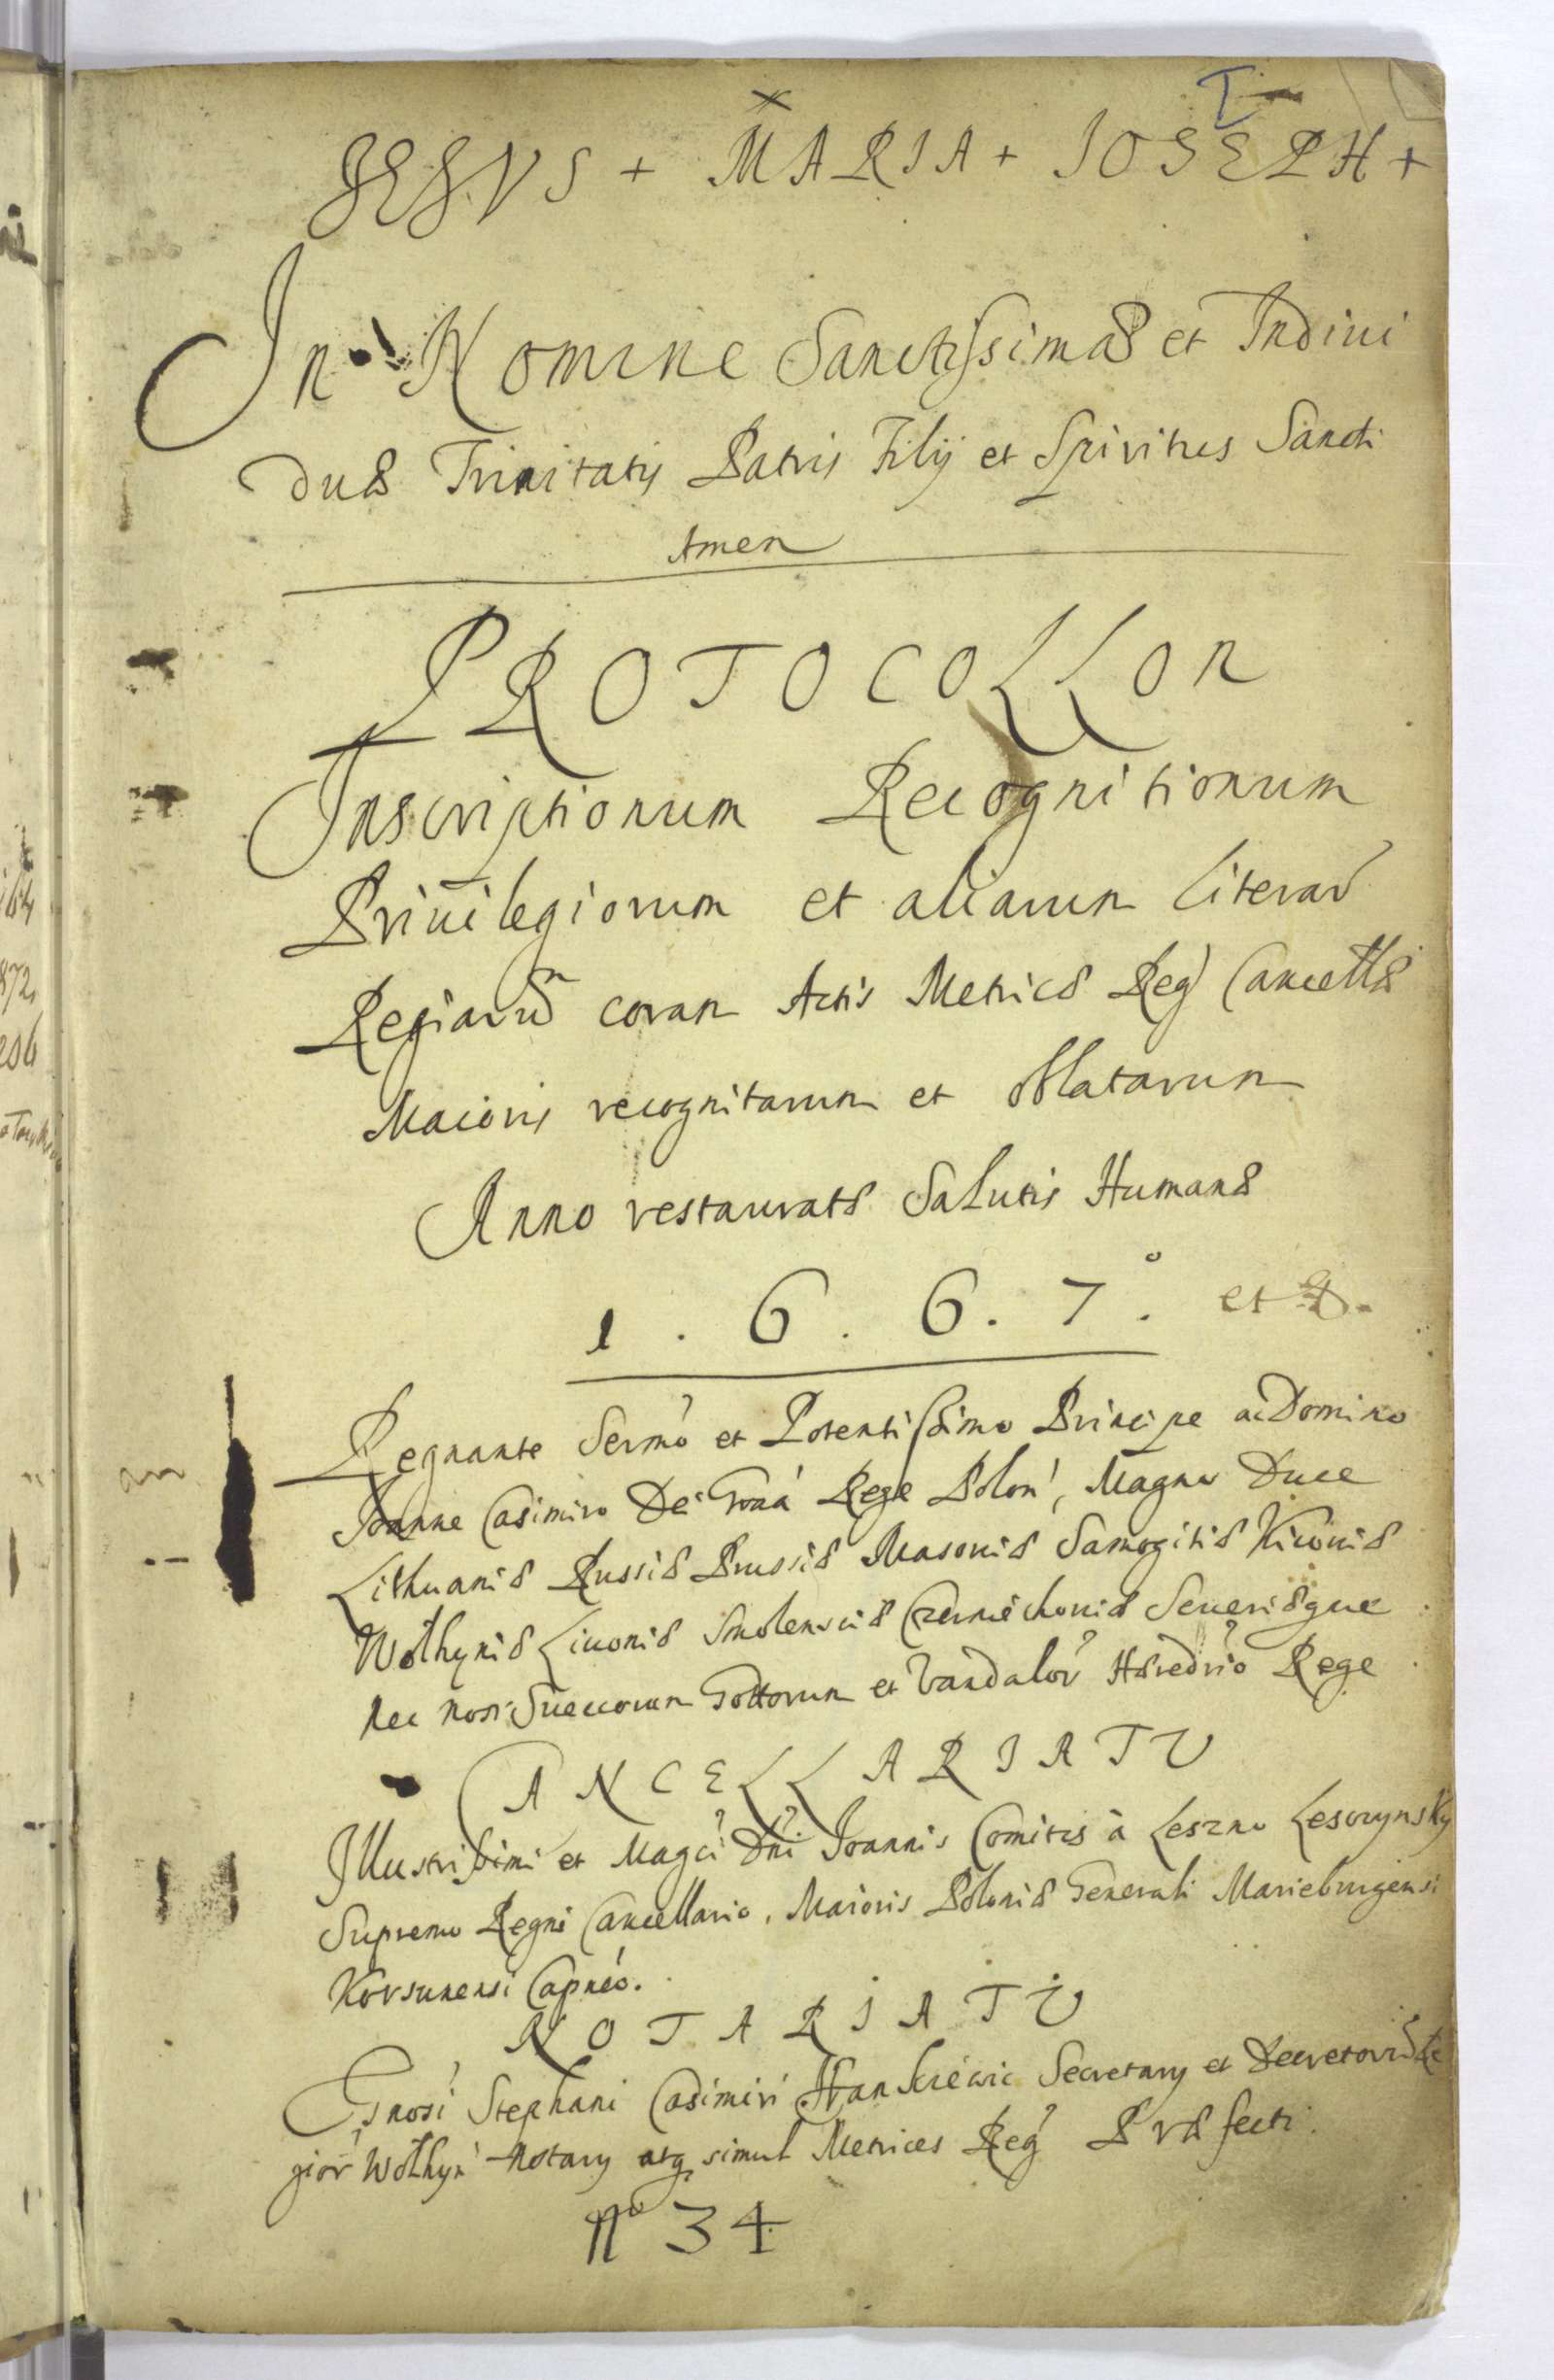 JESVS + MARIA + IOSEPH +
In Nomine Sanctissimæ et Indiui
duæ Trinitatis Patris Filij et Spiritus Sancti
Amen
PROTOCOLLON
Inscriptionum Recognitionum
Priuilegiorum et aliarum Literar
Regiarū coram Actis Metricæ Reg Cancellæ
Maioris recognitarum et oblatarum
Anno restauratæ Salutis Humanæ
1. 6. 6. 7.° et 8.
Regnante Sermo et Potentissimo Principe ac Domino
Joanne Casimiro Dei Graa Rege Polon, Magno Duce
Lithuaniæ Russiæ Prussiæ Masouiæ Samogitiæ Kiiouiæ
Wolhyniæ Liuoniæ Smolensciæ Czerniechouiæ Seueriæque
nec non Suecorum Gottorum et Vandalor Hæredrio Rege
CANCELLARIATU
Illustrissimi et Magci Dni Joannis Comitis à Leszno Lesczynsky
Supremo Regni Cancellario, Maioris Poloniæ Generali Marieburgensi
Korsunensi Capneo.
NOTARIATU
Gnosi Stephani Casimiri Hankiewic Secretary et Decretorū Re
gior Wolhyn Notary atq simul Metrices Reg Præfecti.
No 34